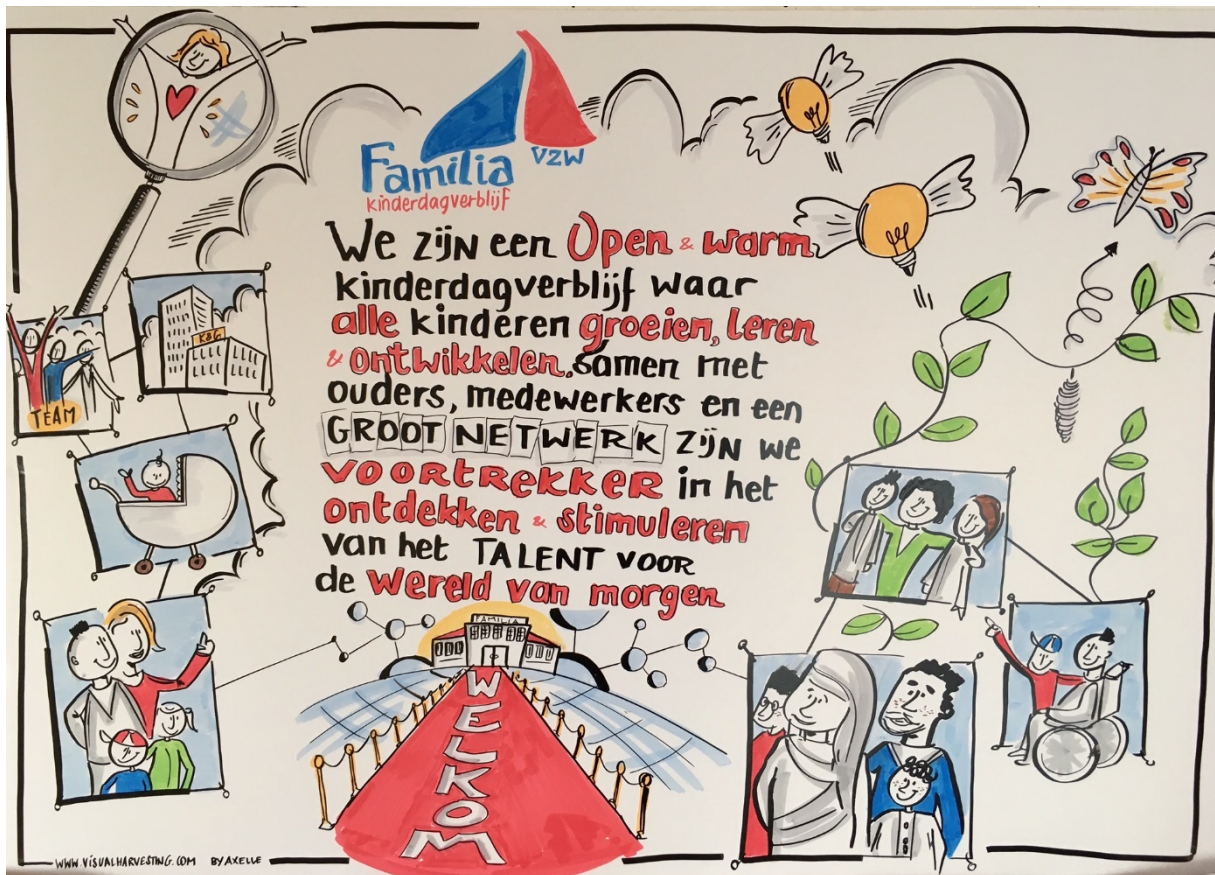 Familia VZW
kinderdagverblijf
We zijn een Open & warm
kinderdagverblijf waar
alle kinderen groeien, leren
& ontwikkelen. Samen met
ouders, medewerkers en een
GROOT NETWERK zijn we
VOORTREKKER in het
ontdekken & stimuleren
van het TALENT VOOR
de wereld van morgen
K&G
TEAM
FAMILIA
WELKOM
WWW.VISUALHARVESTING.COM BY AXELLE